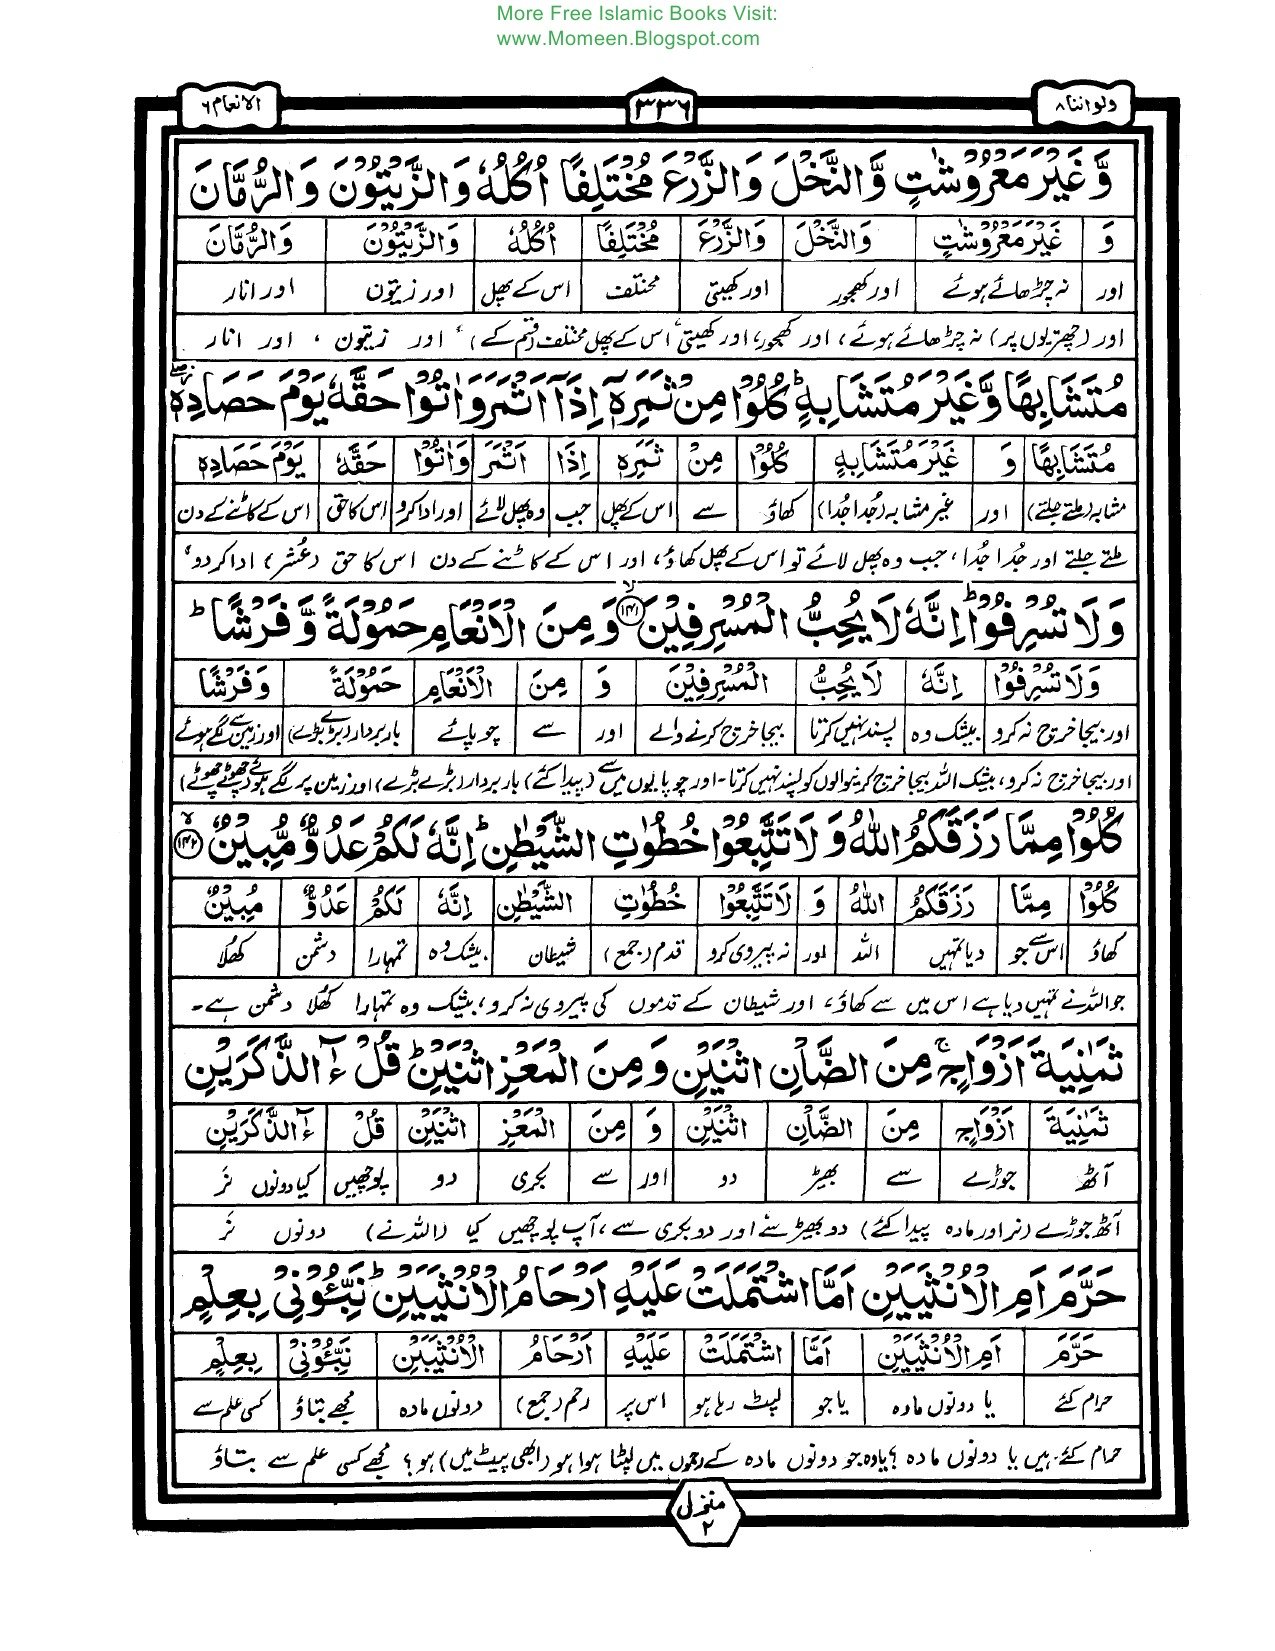 More Free Islamic Books Visit:
www.Momeen.Blogspot.com
ولواننا ۸ ۳۳۶ الانعام ۶
وَّ غَيْرَ مَعْرُوْشٰتٍ وَّالنَّخْلَ وَالزَّرْعَ مُخْتَلِفًا اُكُلُهٗ وَالزَّيْتُوْنَ وَالرُّمَّانَ
وَ غَيْرَ مَعْرُوْشٰتٍ وَالنَّخْلَ وَالزَّرْعَ مُخْتَلِفًا اُكُلُهٗ وَالزَّيْتُوْنَ وَالرُّمَّانَ
اور نہ چڑھائے ہوئے اور کھجور اور کھیتی مختلف اس کے پھل اور زیتون اور انار
اور (چھتریوں پر) نہ چڑھائے ہوئے، اور کھجور، اور کھیتی، اس کے پھل مختلف (قسم کے)، اور زیتون، اور انار
مُتَشَابِهًا وَّغَيْرَ مُتَشَابِهٍ ؕ كُلُوْا مِنْ ثَمَرِهٖٓ اِذَآ اَثْمَرَ وَاٰتُوْا حَقَّهٗ يَوْمَ حَصَادِهٖ
مُتَشَابِهًا وَ غَيْرَ مُتَشَابِهٍ كُلُوْا مِنْ ثَمَرِهٖ اِذَا اَثْمَرَ وَاٰتُوْا حَقَّهٗ يَوْمَ حَصَادِهٖ
مشابہ (ملتے جلتے) اور غیر مشابہ (جُدا جُدا) کھاؤ سے اس کے پھل جب وہ پھل لائے اور ادا کرو اس کا حق اس کے کاٹنے کے دن
ملتے جلتے اور جُدا جُدا، جب وہ پھل لائے تو اس کے پھل کھاؤ، اور اس کے کاٹنے کے دن اس کا حق (عُشر) ادا کر دو،
وَلَا تُسْرِفُوْا ؕ اِنَّهٗ لَا يُحِبُّ الْمُسْرِفِيْنَ ۱۴۱ وَ مِنَ الْاَنْعَامِ حَمُوْلَةً وَّ فَرْشًا ؕ
وَلَا تُسْرِفُوْا اِنَّهٗ لَا يُحِبُّ الْمُسْرِفِيْنَ وَ مِنَ الْاَنْعَامِ حَمُوْلَةً وَفَرْشًا
اور بیجا خرچ نہ کرو بیشک وہ پسند نہیں کرتا بیجا خرچ کرنے والے اور سے چوپائے باربردار (بڑے بڑے) اور زمین سے لگے ہوئے
اور بیجا خرچ نہ کرو، بیشک اللہ بیجا خرچ کرنیوالوں کو پسند نہیں کرتا۔ اور چوپایوں میں سے (پیدا کئے) باربردار (بڑے بڑے) اور زمین پر لگے ہوئے (چھوٹے چھوٹے)
كُلُوْا مِمَّا رَزَقَكُمُ اللّٰهُ وَ لَا تَتَّبِعُوْا خُطُوٰتِ الشَّيْطٰنِ ؕ اِنَّهٗ لَكُمْ عَدُوٌّ مُّبِيْنٌ ۱۴۲
كُلُوْا مِمَّا رَزَقَكُمُ اللّٰهُ وَ لَا تَتَّبِعُوْا خُطُوٰتِ الشَّيْطٰنِ اِنَّهٗ لَكُمْ عَدُوٌّ مُبِيْنٌ
کھاؤ اس سے جو دیا تمہیں اللہ اور نہ پیروی کرو قدم (جمع) شیطان بیشک وہ تمہارا دشمن کھُلا
جو اللہ نے تمہیں دیا ہے اس میں سے کھاؤ، اور شیطان کے قدموں کی پیروی نہ کرو، بیشک وہ تمہارا کھُلا دشمن ہے۔
ثَمٰنِيَةَ اَزْوَاجٍ ۚ مِنَ الضَّاْنِ اثْنَيْنِ وَ مِنَ الْمَعْزِ اثْنَيْنِ ؕ قُلْ ءٰٓالذَّكَرَيْنِ
ثَمٰنِيَةَ اَزْوَاجٍ مِنَ الضَّاْنِ اثْنَيْنِ وَ مِنَ الْمَعْزِ اثْنَيْنِ قُلْ ءٰٓالذَّكَرَيْنِ
آٹھ جوڑے سے بھیڑ دو اور سے بکری دو پوچھیں کیا دونوں نَر
آٹھ جوڑے (نر اور مادہ پیدا کئے) دو بھیڑ سے اور دو بکری سے، آپ پوچھیں کیا (اللہ نے) دونوں نَر
حَرَّمَ اَمِ الْاُنْثَيَيْنِ اَمَّا اشْتَمَلَتْ عَلَيْهِ اَرْحَامُ الْاُنْثَيَيْنِ ؕ نَبِّـُٔوْنِيْ بِعِلْمٍ
حَرَّمَ اَمِ الْاُنْثَيَيْنِ اَمَّا اشْتَمَلَتْ عَلَيْهِ اَرْحَامُ الْاُنْثَيَيْنِ نَبِّـُٔوْنِيْ بِعِلْمٍ
حرام کئے یا دونوں مادہ یا جو لپٹ رہا ہو اس پر رحم (جمع) دونوں مادہ مجھے بتاؤ کسی علم سے
حرام کئے ہیں یا دونوں مادہ؟ یا وہ جو دونوں مادہ کے رحموں میں لپٹا ہوا ہو (ابھی پیٹ میں) ہو؟ مجھے کسی علم سے بتاؤ
منزل ۲